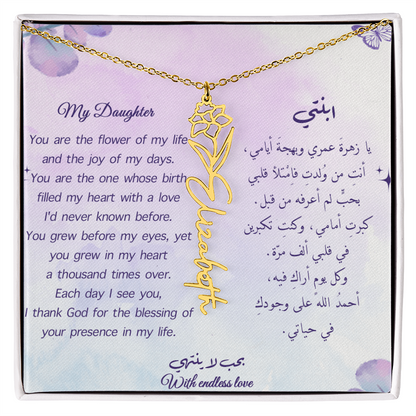 My Daughter
You are the flower of my life
and the joy of my days.
You are the one whose birth
filled my heart with a love
I'd never known before.
You grew before my eyes, yet
you grew in my heart
a thousand times over.
Each day I see you,
I thank God for the blessing of
your presence in my life.
Elizabeth
ابنتي
يا زهرةَ عمري وبهجةَ أيامي،
أنتِ من وُلدتِ فامْتلأ قلبي
بحبٍّ لم أعرفه من قبل.
كبرتِ أمامي، وكنتِ تكبرين
في قلبي ألف مرّة.
وكل يوم أراكِ فيه،
أحمدُ اللهَ على وجودكِ
في حياتي.
بحب لا ينتهي
With endless love